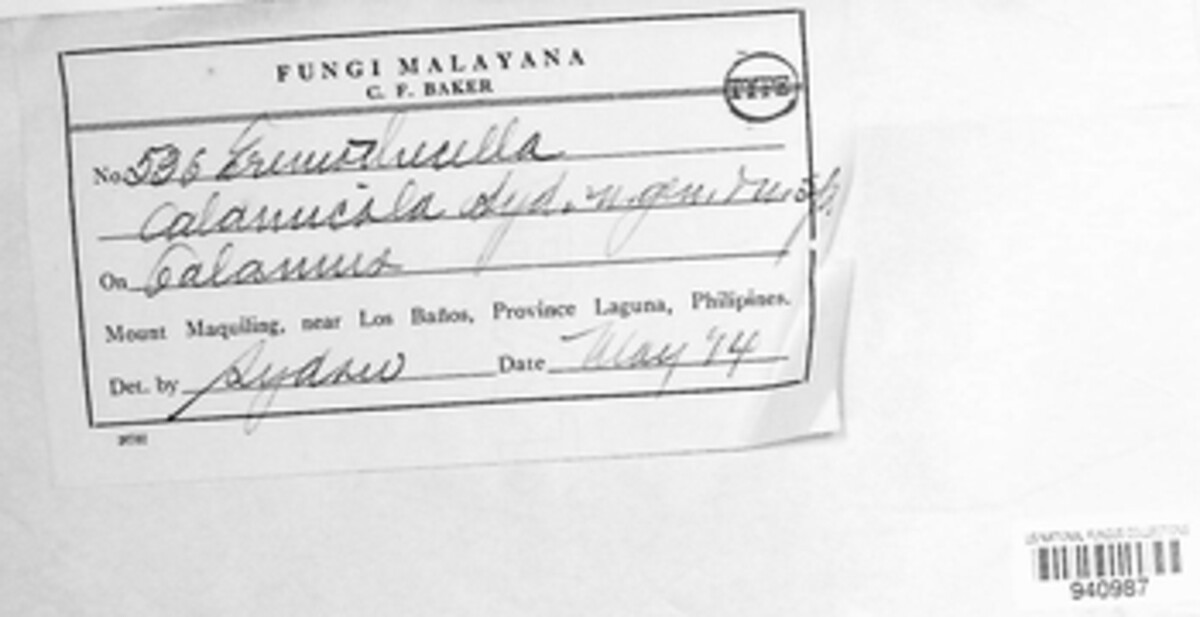 FUNGI MALAYANA
C. F. BAKER
No. 536 Eremothecella
Calamicola Syd. n. gen. & n. sp.
On Calamus
Mount Maquiling, near Los Baños, Province Laguna, Philipines.
Det. by Sydow Date May '14
US NATIONAL FUNGUS COLLECTIONS
940987